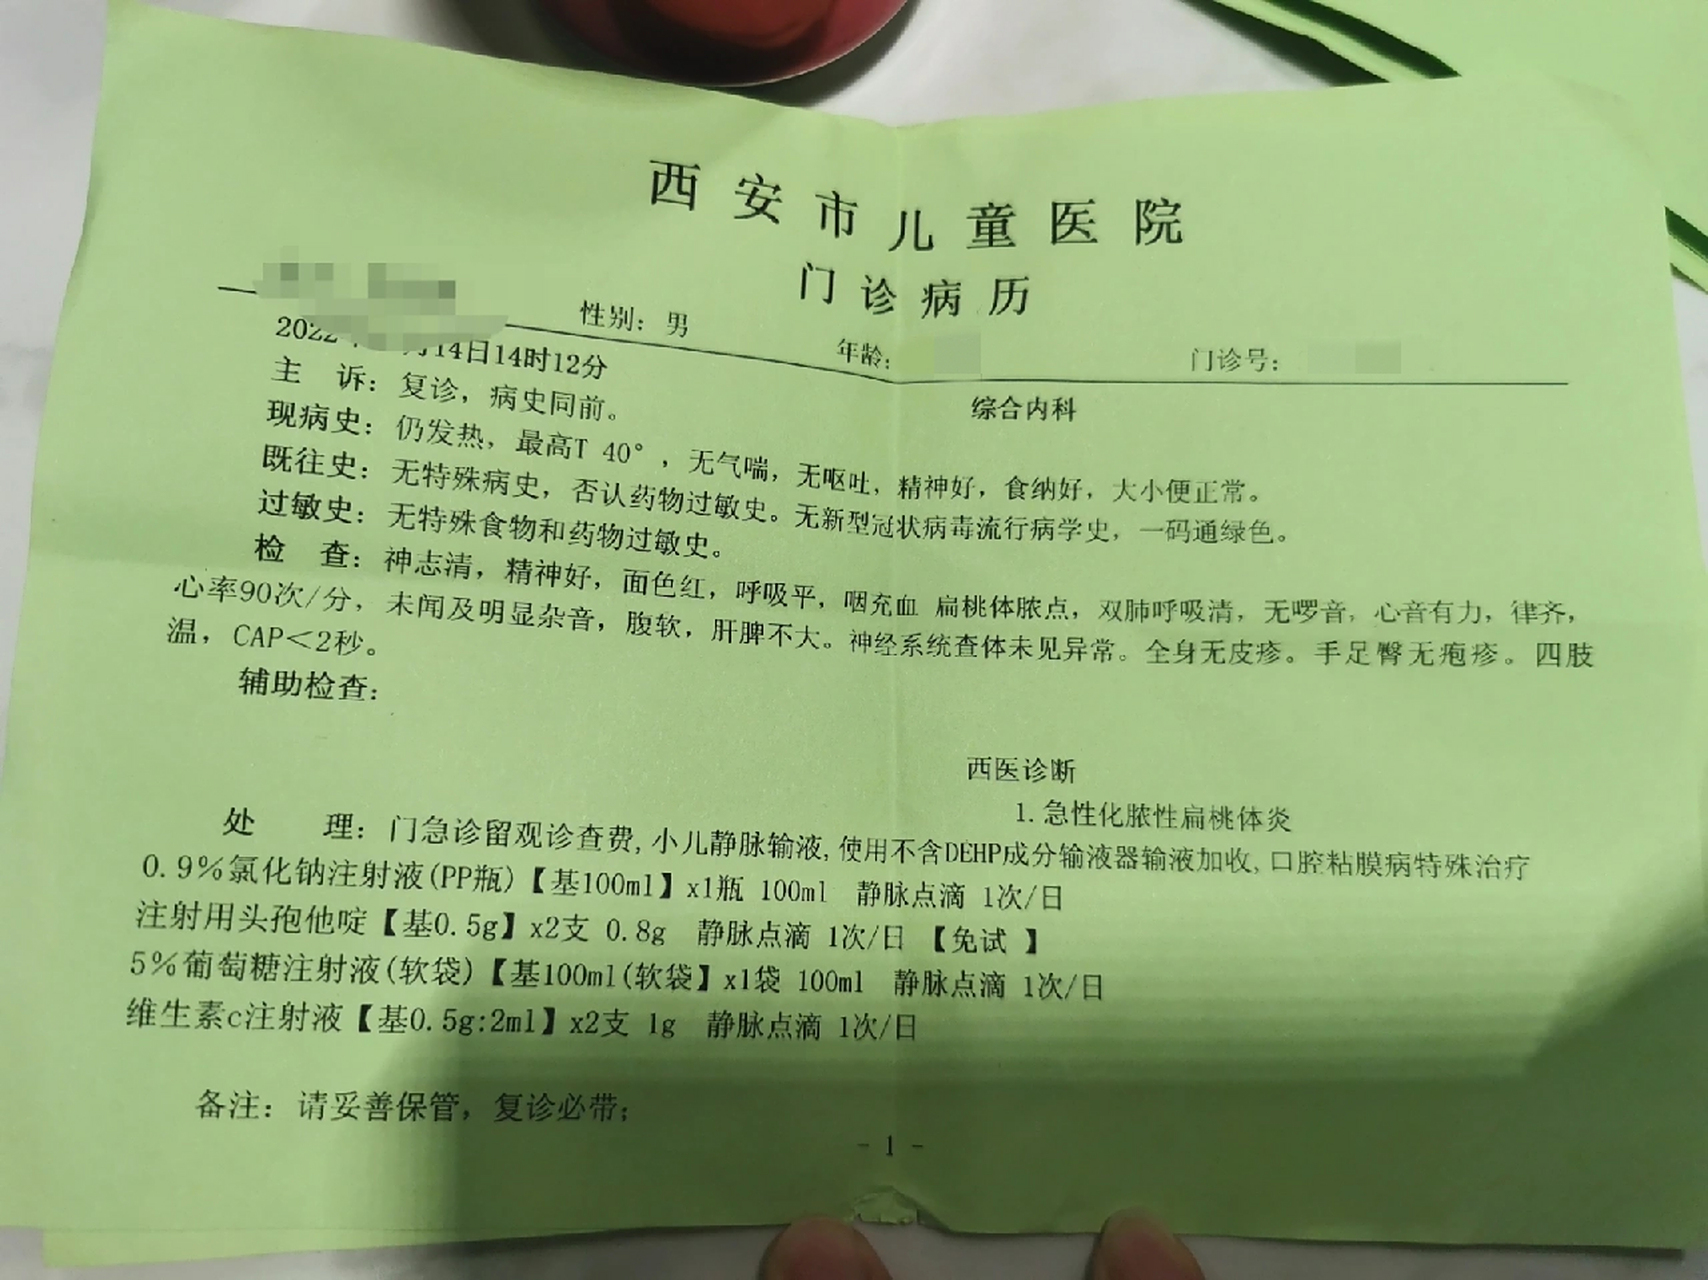 西安市儿童医院
门诊病历
性别：男 年龄： 门诊号：
2022 月14日14时12分 综合内科
主 诉：复诊，病史同前。
现病史：仍发热，最高T 40°，无气喘，无呕吐，精神好，食纳好，大小便正常。
既往史：无特殊病史，否认药物过敏史。无新型冠状病毒流行病学史，一码通绿色。
过敏史：无特殊食物和药物过敏史。
检 查：神志清，精神好，面色红，呼吸平，咽充血 扁桃体脓点，双肺呼吸清，无啰音，心音有力，律齐，
心率90次/分，未闻及明显杂音，腹软，肝脾不大。神经系统查体未见异常。全身无皮疹。手足臀无疱疹。四肢
温，CAP＜2秒。
辅助检查：
西医诊断
1.急性化脓性扁桃体炎
处 理：门急诊留观诊查费,小儿静脉输液,使用不含DEHP成分输液器输液加收,口腔粘膜病特殊治疗
0.9%氯化钠注射液(PP瓶)【基100ml】x1瓶 100ml 静脉点滴 1次/日
注射用头孢他啶【基0.5g】x2支 0.8g 静脉点滴 1次/日 【免试 】
5%葡萄糖注射液(软袋)【基100ml(软袋】x1袋 100ml 静脉点滴 1次/日
维生素c注射液【基0.5g:2ml】x2支 1g 静脉点滴 1次/日
备注：请妥善保管，复诊必带;
- 1 -